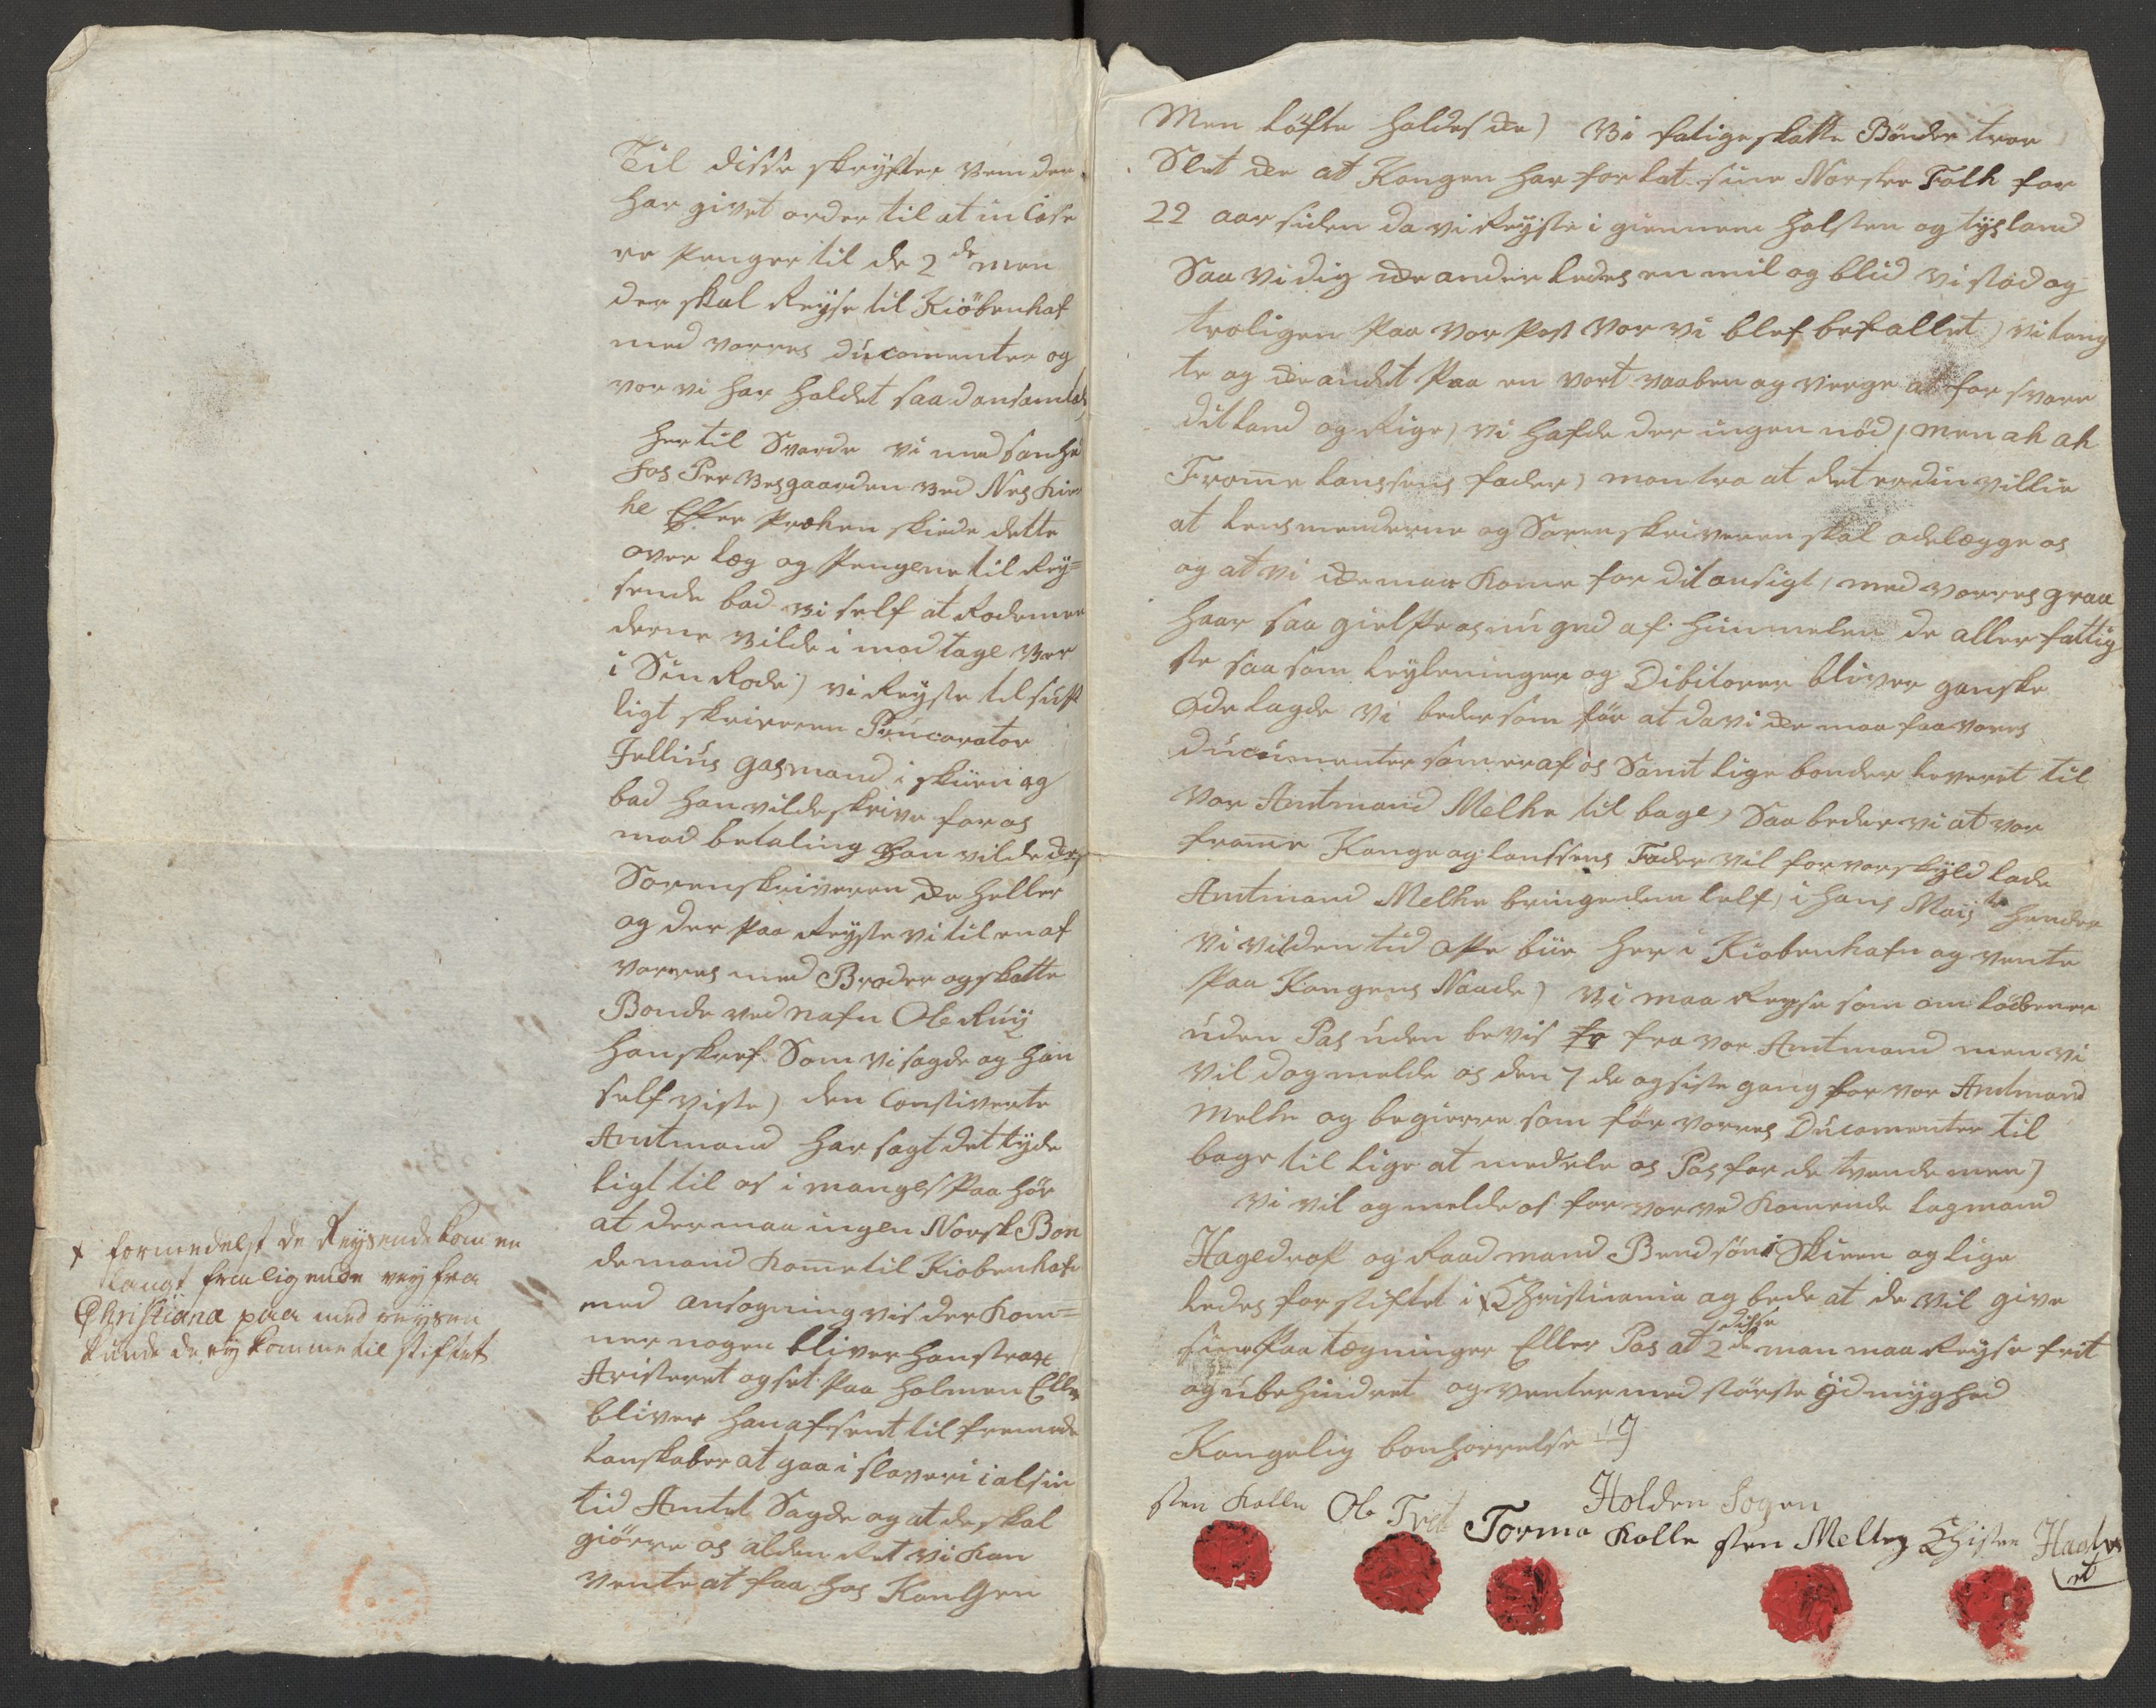 Til disse skryfter vem der
har givet order til at in Case
re Penger til de 2de men
der skal Reyse til Kiöbenhaf
med vorres ducomenter og
vor vi har holdet saadansamlæ
her til Svarde vi med sanhe
hos Per Vesgaarden ved Nes kir
ke Efter Præken skiede dette
over læg og Pengene til Rey=
sende bad vi self at Rodemen
derne vilde i mod tage ver
i Sin Rode) vi Reyste til
ligt skriveren Prucorator
Jellius Gasmand i skien og
bad han vilde skrive for os
mod betaling han vilde
Sorenskriveren ike heller
og der paa Reyste vi til en af
vorres med Broder og skatte
Bonde ved nafn Ole Ruy
han skref Som vi sagde og han
self viste) den Constiverte
Amtmand har sagt det tyde
ligt til os i manges Paa hör
at der maa ingen Norsk Bon
demand kome til Kiobenhafn
med ansogning vis der kom=
mer nogen bliver han strax
Aristeret og sat Paa holmen Eller
bliver han afsent til fremede
lanskaber at gaa i slaveri i al sin
tid Amtet Sagde og at de skal
giörre os alden Ret vi kan
vente at faa hos Kongen
x formedelst de Reysende kom en
langt fraaligende vey fra
Christiana paa med reysen
kunde de ey komme til stiftet
Men löfte holdes ike) Vi fatige skatte Bönder tror
Slet ike at Kongen har forlat sine Norske Folk for
22 aar siden da vi Reyste i giennem Holsten og tysland
Saa vi dig ike anderledes en mil og blid vi stod og
troligen paa vor post vor vi blef befallet) vi teng
te og ike andet Paa en vort vaaben og verge at for svare
dit land og Rige) vi hafde der ingen nöd) men ak ak
Frome lanssens fader) mon tro at det er din villie
at lensmenderne og Sorenskriveren skal odelægge os
og at vi ike maa kome for dit ansigt, med vorres graa
haar saa gielpe os nu gud af himmelen de aller fattig
ste saa som leylenninger og Dibitorer bliver ganske
Ödelagde vi beder som för at da vi ike maa faa vores
ducumenter som er af os Samtlige bonder leveret til
vor Amtmand Melke til bage) Saa beder vi at vor
frome Konge og lanssens Fader vil for vor skyld lade
Amtmand Melke bringe dem self, i hans Mays hender
vi vil den tid bie her i Kiobenhafn og vente
Paa Kongens Naade) vi maa Reyse som om löbener
uden Pas uden bevis fra vor Amtmand men vi
vil dog melde os den 7 de og siste gang for vor Amtmand
Melke og begierre som för vorres Ducomenter til
bage til lige at medele os Pas for de tvende men)
vi vil og melde os for vor ved komende lagmand
Hagedrof og Raad mand Bendsön i Skien og lige
ledes for stiftet i x Christiania og bede at de vil give
sine Paa tegninger Eller Pas at disse 2de man maa Reyse frit
og ubehindret og venter med störste ydmyghed
Kongelig bönhorrelse
Holden Sogen
sten kolle Ole Tvet Tormo kolle sten Melleg Christen Haatvet